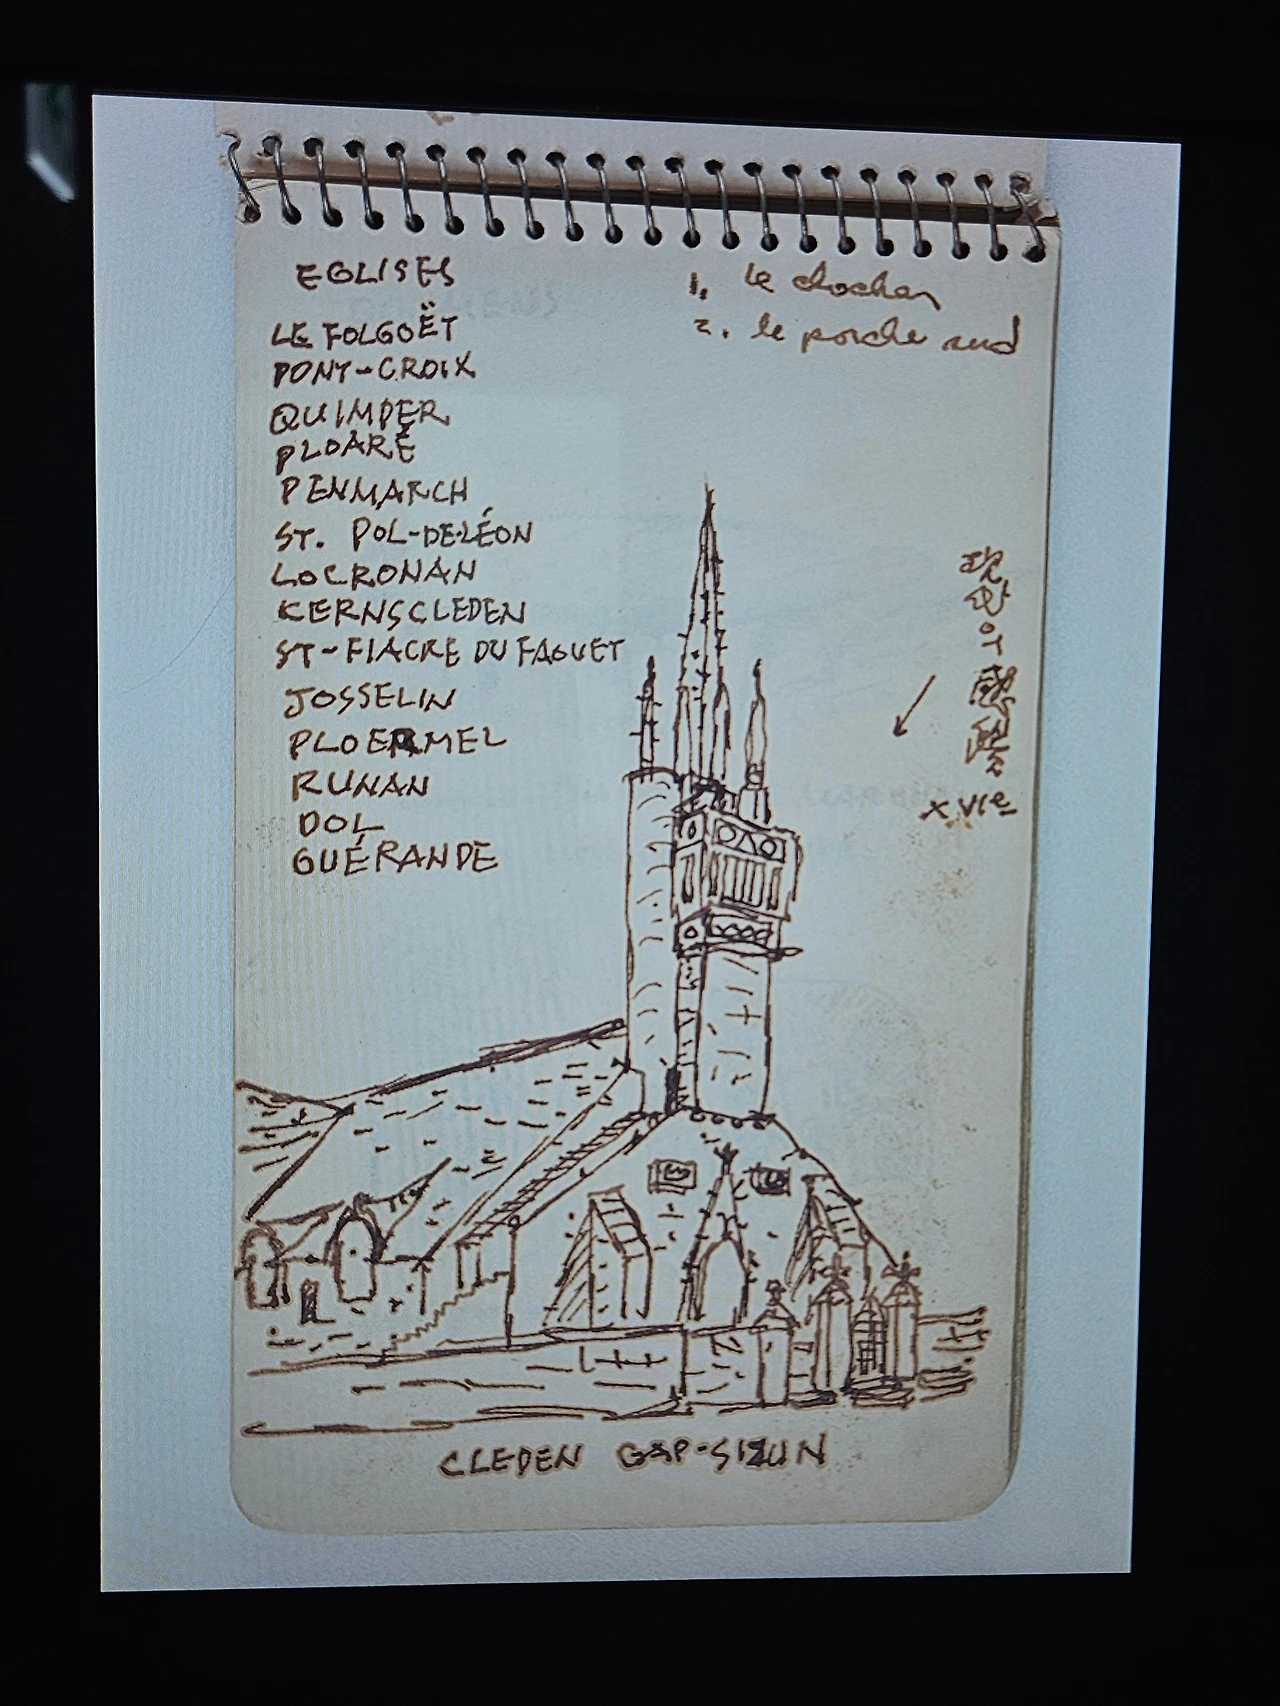 EGLISES
LE FOLGOËT
PONT-CROIX
QUIMPER
PLOARÉ
PENMARCH
ST. POL-DE-LÉON
LOCRONAN
KERNSCLEDEN
ST-FIACRE DU FAOUET
JOSSELIN
PLOERMEL
RUNAN
DOL
GUÉRANDE
1. le clocher
2. le porche sud
XVIe
CLEDEN CAP-SIZUN